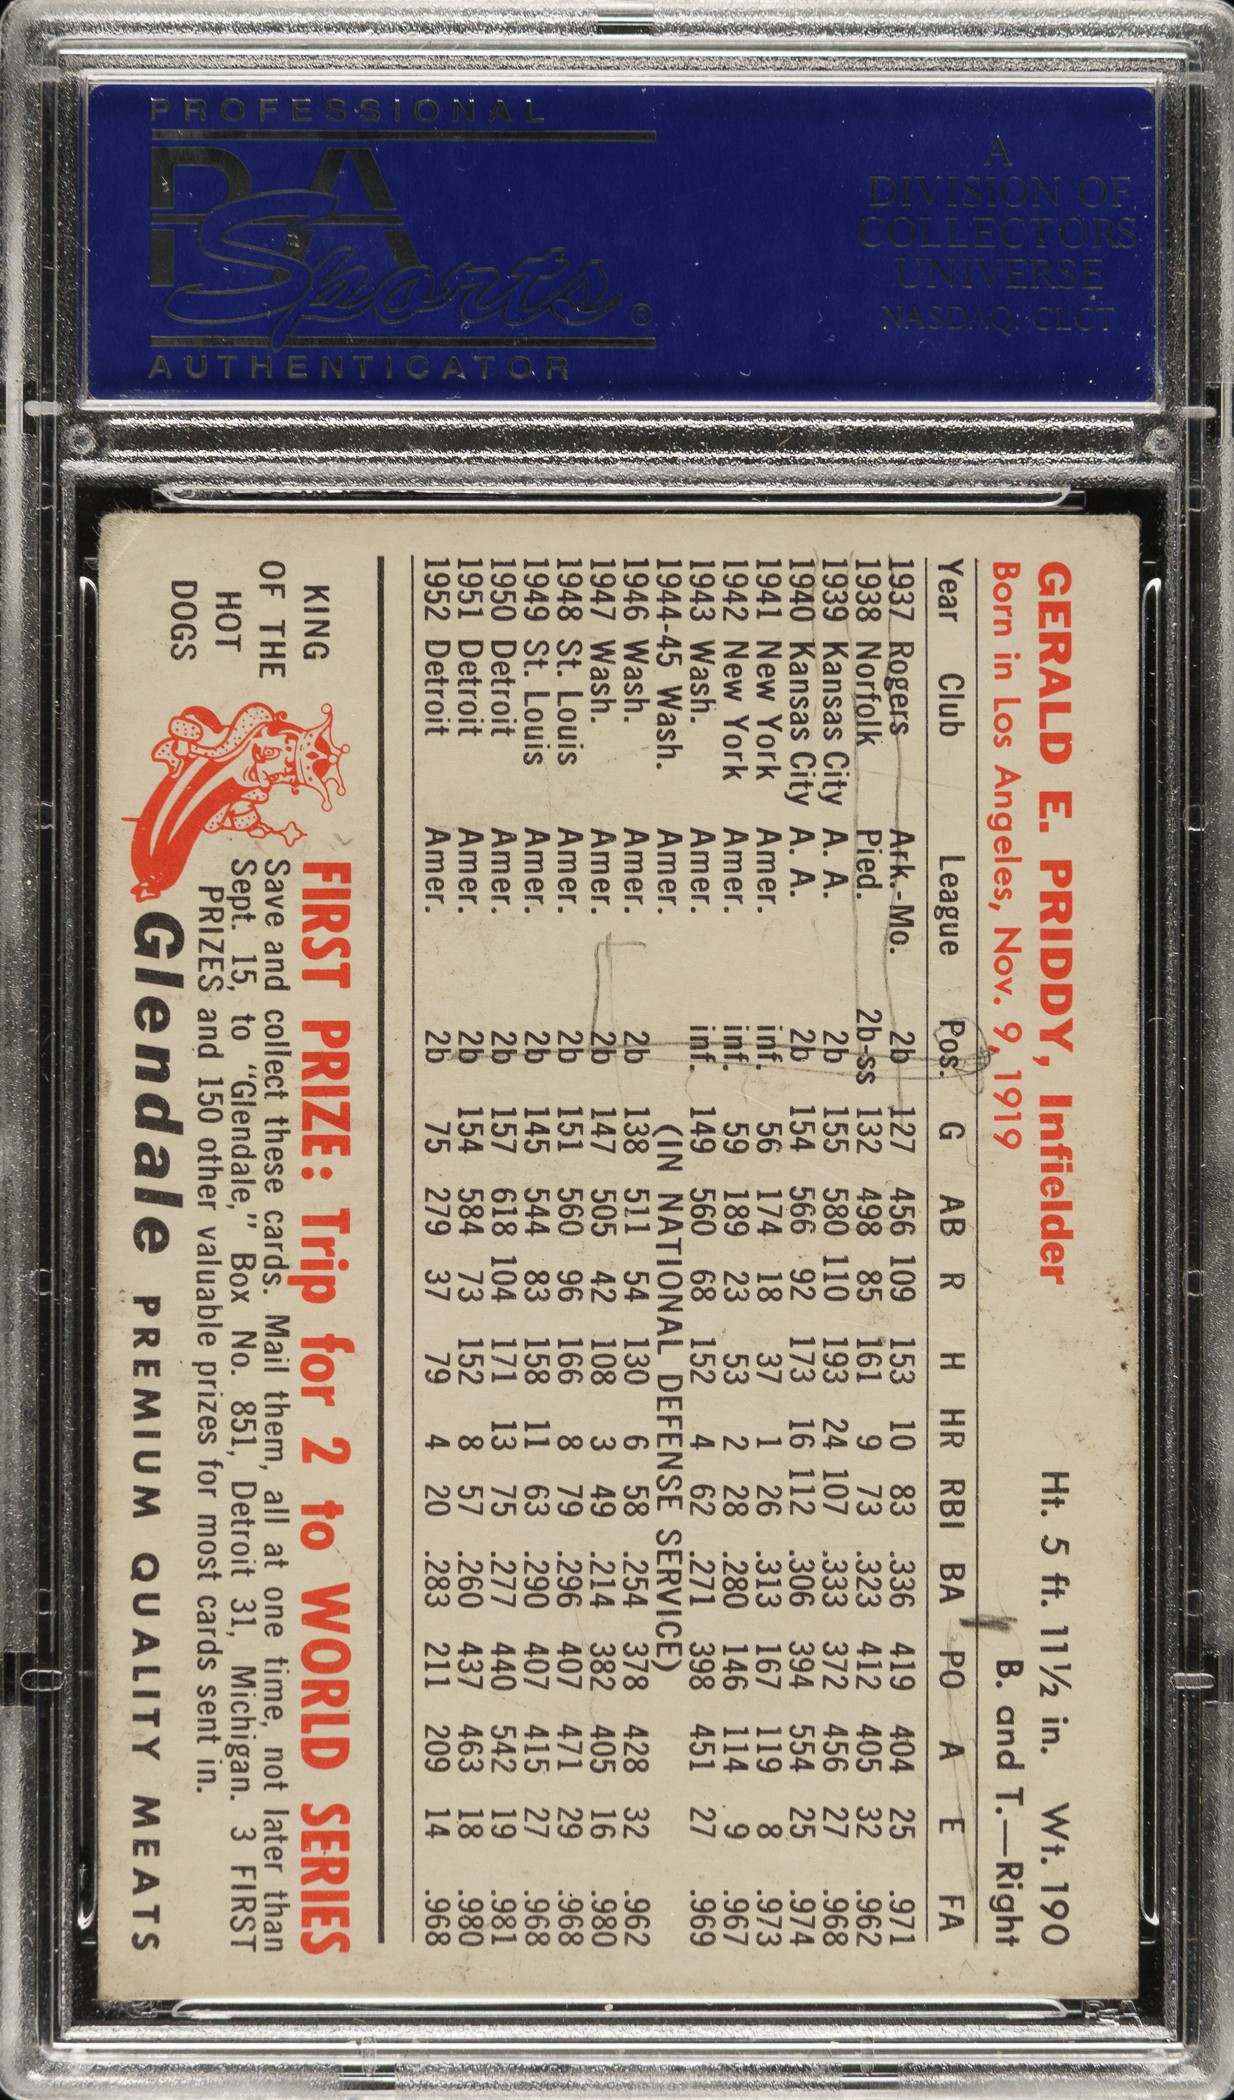 PROFESSIONAL
PSA
Sports®
AUTHENTICATOR
A
DIVISION OF
COLLECTORS
UNIVERSE
NASDAQ: CLCT
GERALD E. PRIDDY, Infielder Ht. 5 ft. 11½ in. Wt. 190
Born in Los Angeles, Nov. 9, 1919 B. and T.—Right
Year Club League Pos. G AB R H HR RBI BA PO A E FA
1937 Rogers Ark.-Mo. 2b 127 456 109 153 10 83 .336 419 404 25 .971
1938 Norfolk Pied. 2b-ss 132 498 85 161 9 73 .323 412 405 32 .962
1939 Kansas City A. A. 2b 155 580 110 193 24 107 .333 372 456 27 .968
1940 Kansas City A. A. 2b 154 566 92 173 16 112 .306 394 554 25 .974
1941 New York Amer. inf. 56 174 18 37 1 26 .313 167 119 8 .973
1942 New York Amer. inf. 59 189 23 53 2 28 .280 146 114 9 .967
1943 Wash. Amer. inf. 149 560 68 152 4 62 .271 398 451 27 .969
1944-45 Wash. Amer. (IN NATIONAL DEFENSE SERVICE)
1946 Wash. Amer. 2b 138 511 54 130 6 58 .254 378 428 32 .962
1947 Wash. Amer. 2b 147 505 42 108 3 49 .214 382 405 16 .980
1948 St. Louis Amer. 2b 151 560 96 166 8 79 .296 407 471 29 .968
1949 St. Louis Amer. 2b 145 544 83 158 11 63 .290 407 415 27 .968
1950 Detroit Amer. 2b 157 618 104 171 13 75 .277 440 542 19 .981
1951 Detroit Amer. 2b 154 584 73 152 8 57 .260 437 463 18 .980
1952 Detroit Amer. 2b 75 279 37 79 4 20 .283 211 209 14 .968
KING
OF THE
HOT
DOGS
FIRST PRIZE: Trip for 2 to WORLD SERIES
Save and collect these cards. Mail them, all at one time, not later than
Sept. 15, to "Glendale," Box No. 851, Detroit 31, Michigan. 3 FIRST
PRIZES and 150 other valuable prizes for most cards sent in.
Glendale PREMIUM QUALITY MEATS